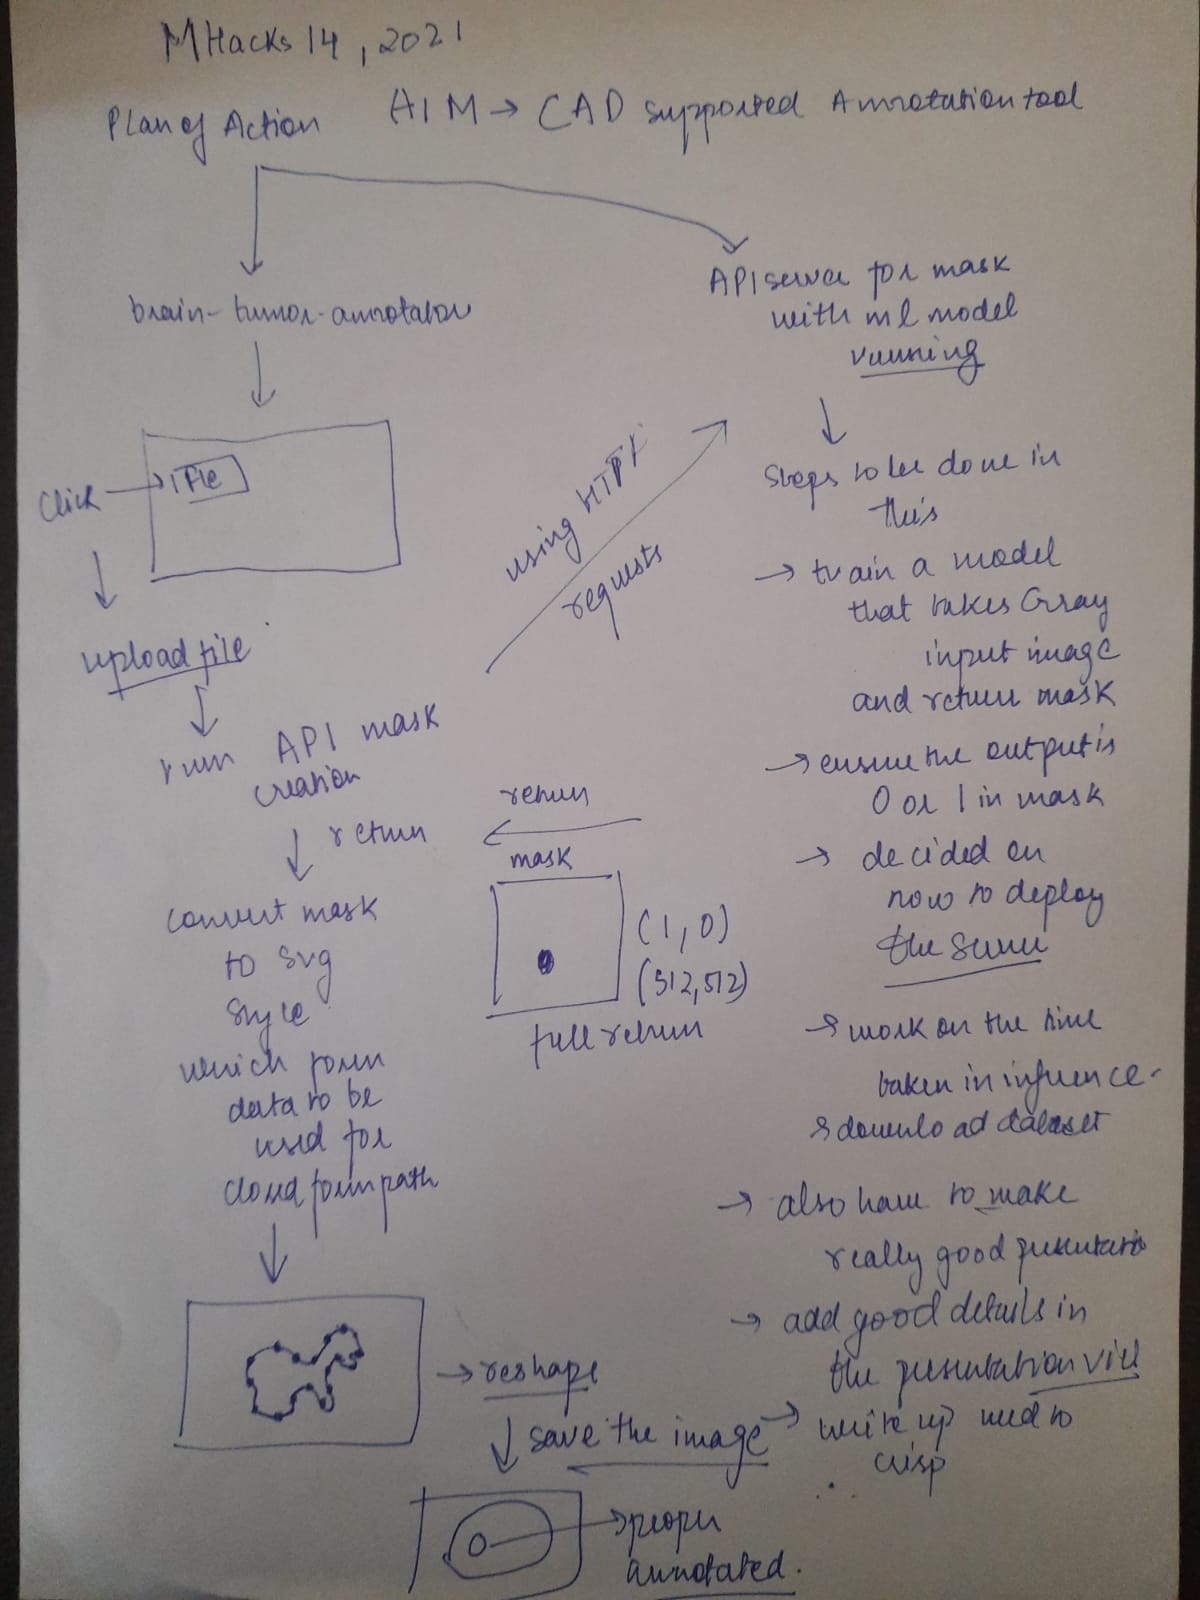 MHacks 14, 2021
Plan of Action
AIM → CAD supported Annotation tool
brain-tumor-annotator
Click → File
upload file
run API mask
creation
return
convert mask
to svg
style
which form
data to be
used for
closed form path
→ reshape
save the image
→ proper
annotated.
using HTTP
requests
return
mask
(1,0)
(512,512)
full return
API server for mask
with ml model
running
Steps to be done in
this
→ train a model
that takes Gray
input image
and return mask
→ ensure the output is
0 or 1 in mask
→ decided on
how to deploy
the server
→ work on the time
taken in inference
→ download dataset
→ also have to make
really good presentation
→ add good details in
the presentation
→ write up need to
crisp